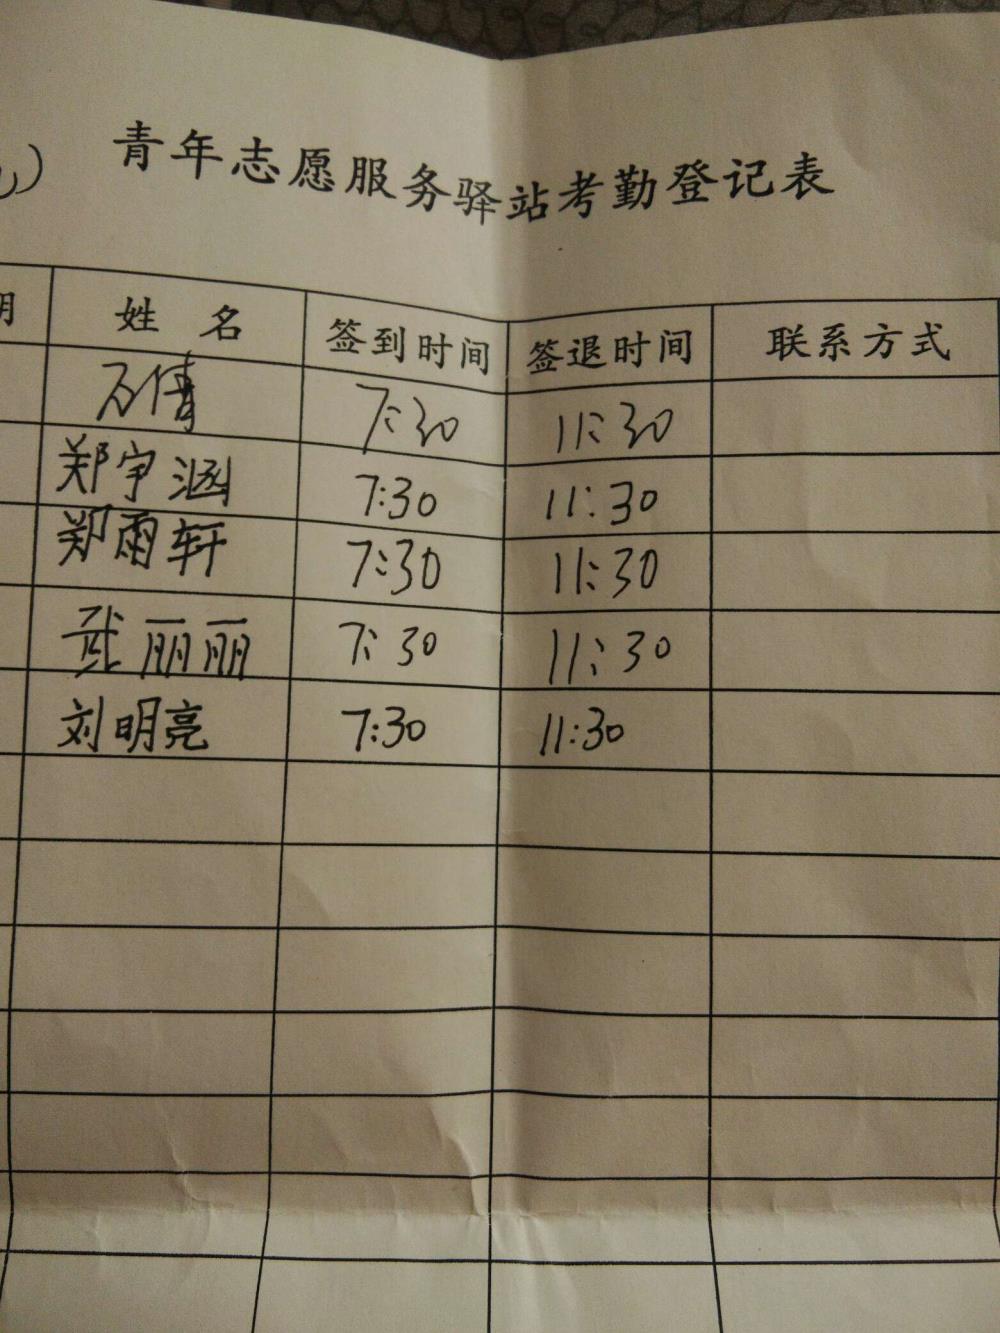 青年志愿服务驿站考勤登记表
期 姓 名 签到时间 签退时间 联系方式
万倩 7:30 11:30
郑宇涵 7:30 11:30
郑雨轩 7:30 11:30
武丽丽 7:30 11:30
刘明亮 7:30 11:30